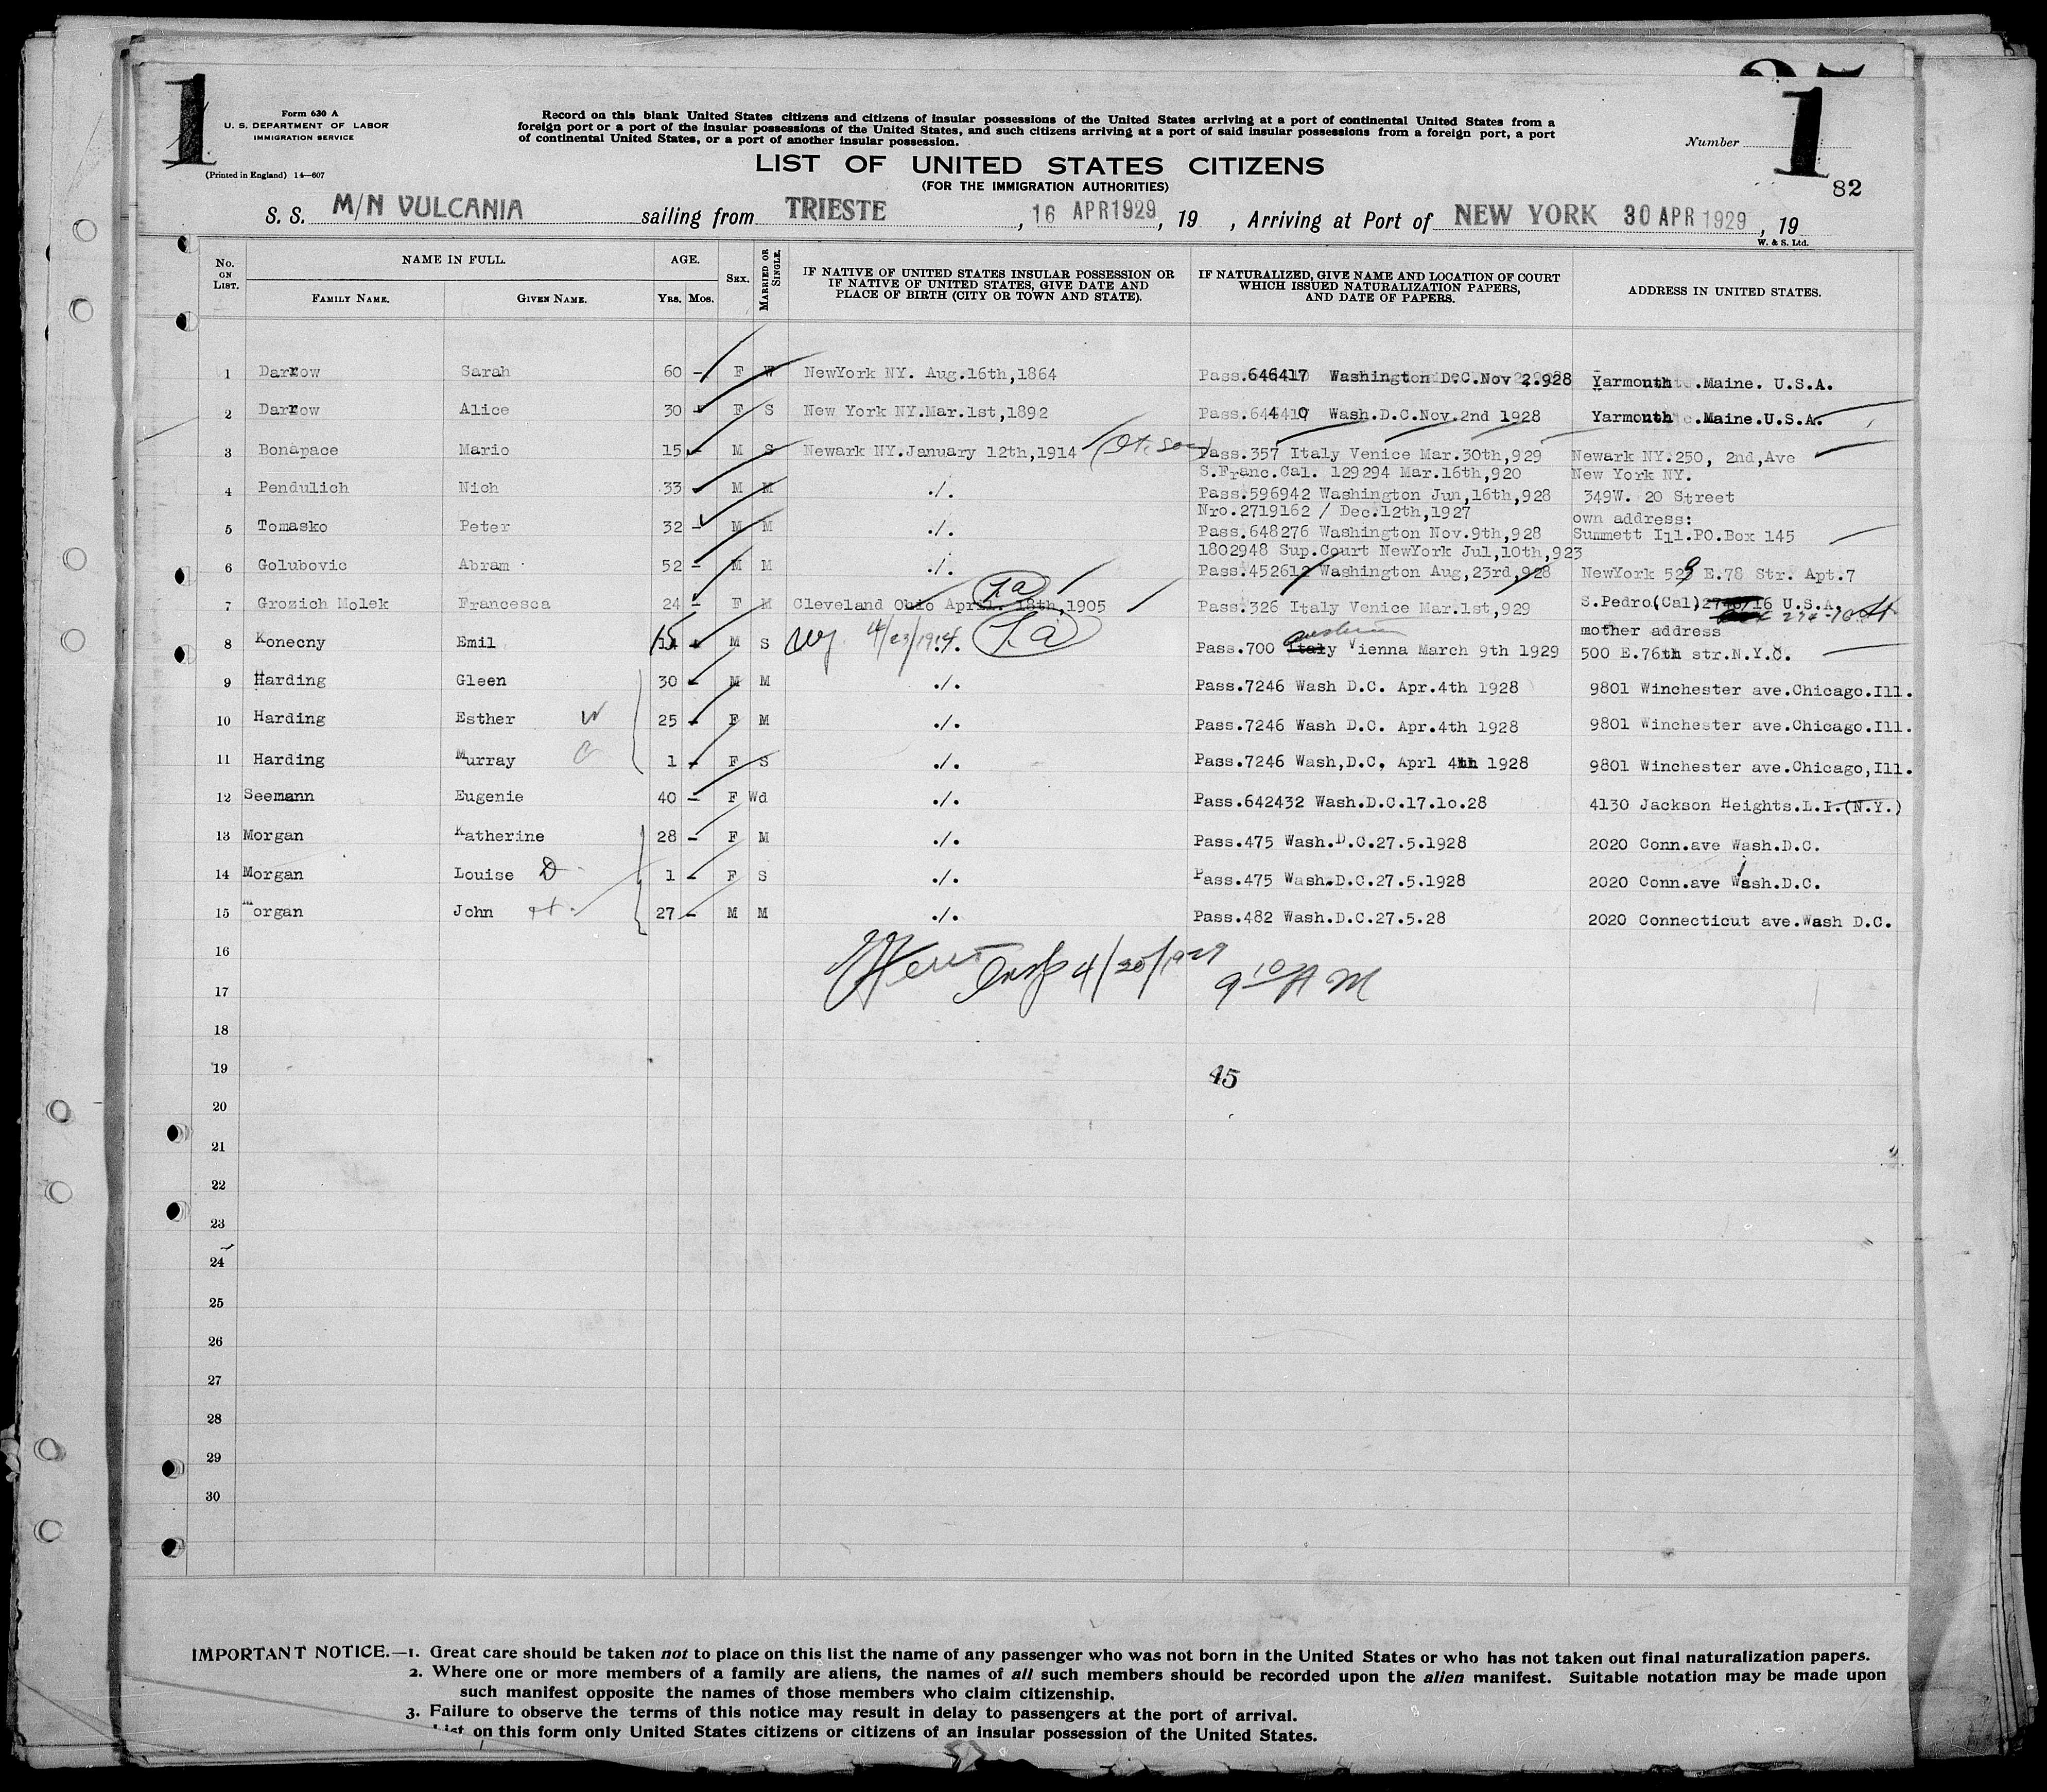 1
Form 630 A
U. S. DEPARTMENT OF LABOR
IMMIGRATION SERVICE
(Printed in England) 14—607
Record on this blank United States citizens and citizens of insular possessions of the United States arriving at a port of continental United States from a
foreign port or a port of the insular possessions of the United States, and such citizens arriving at a port of said insular possessions from a foreign port, a port
of continental United States, or a port of another insular possession.
Number 1
82
LIST OF UNITED STATES CITIZENS
(FOR THE IMMIGRATION AUTHORITIES)
S. S. M/N VULCANIA sailing from TRIESTE, 16 APR 1929, 19 , Arriving at Port of NEW YORK 30 APR 1929, 19
W. & S. Ltd.
No. ON LIST. NAME IN FULL. FAMILY NAME. GIVEN NAME. AGE. YRS. MOS. SEX. MARRIED OR SINGLE. IF NATIVE OF UNITED STATES INSULAR POSSESSION OR IF NATIVE OF UNITED STATES, GIVE DATE AND PLACE OF BIRTH (CITY OR TOWN AND STATE). IF NATURALIZED, GIVE NAME AND LOCATION OF COURT WHICH ISSUED NATURALIZATION PAPERS, AND DATE OF PAPERS. ADDRESS IN UNITED STATES.
1 Darrow Sarah 60 - F W NewYork NY. Aug.16th,1864 Pass.646417 Washington D.C.Nov 2.928 Yarmouth .Maine. U.S.A.
2 Darrow Alice 30 - F S New York NY.Mar.1st,1892 Pass. Wash.D.C.Nov.2nd 1928 Yarmouth .Maine.U.S.A.
3 Bonapace Mario 15 - M S Newark NY.January 12th,1914 Pass.357 Italy Venice Mar.30th,929 Newark NY.250, 2nd,Ave
S.Franc.Cal. 129294 Mar.16th,920 New York NY.
4 Pendulich Nich 33 M M ./. Pass.596942 Washington Jun,16th,928 349W. 20 Street
Nro.2719162 / Dec.12th,1927 own address:
5 Tomasko Peter 32 - M M ./. Pass.648276 Washington Nov.9th,928 Summett Ill.PO.Box 145
1802948 Sup.Court NewYork Jul,10th,923
6 Golubovic Abram 52 - M M ./. Pass.452612 Washington Aug,23rd,928 NewYork 523 E.78 Str. Apt.7
7 Grozich Molek Francesca 24 - F M Cleveland Ohio April. 18th,1905 Pass.326 Italy Venice Mar.1st,929 S.Pedro(Cal) 16 U.S.A.
mother address
8 Konecny Emil 15 - M S NY 4/23/1914. ./. Pass.700 Italy Vienna March 9th 1929 500 E.76th str.N.Y.C.
9 Harding Gleen 30 - M M ./. Pass.7246 Wash D.C. Apr.4th 1928 9801 Winchester ave.Chicago.Ill.
10 Harding Esther W 25 - F M ./. Pass.7246 Wash D.C. Apr.4th 1928 9801 Winchester ave.Chicago.Ill.
11 Harding Murray C 1 - F S ./. Pass.7246 Wash,D.C, Aprl 4th 1928 9801 Winchester ave.Chicago,Ill.
12 Seemann Eugenie 40 - F Wd ./. Pass.642432 Wash.D.C.17.10.28 4130 Jackson Heights.L.I.(N.Y.)
13 Morgan Katherine 28 - F M ./. Pass.475 Wash.D.C.27.5.1928 2020 Conn.ave Wash.D.C.
14 Morgan Louise D 1 - F S ./. Pass.475 Wash.D.C.27.5.1928 2020 Conn.ave Wash.D.C.
15 Morgan John H. 27 - M M ./. Pass.482 Wash.D.C.27.5.28 2020 Connecticut ave.Wash D.C.
16
Insp 9 10 AM
17
18
19
45
20
21
22
23
24
25
26
27
28
29
30
IMPORTANT NOTICE.—1. Great care should be taken not to place on this list the name of any passenger who was not born in the United States or who has not taken out final naturalization papers.
2. Where one or more members of a family are aliens, the names of all such members should be recorded upon the alien manifest. Suitable notation may be made upon
such manifest opposite the names of those members who claim citizenship.
3. Failure to observe the terms of this notice may result in delay to passengers at the port of arrival.
List on this form only United States citizens or citizens of an insular possession of the United States.